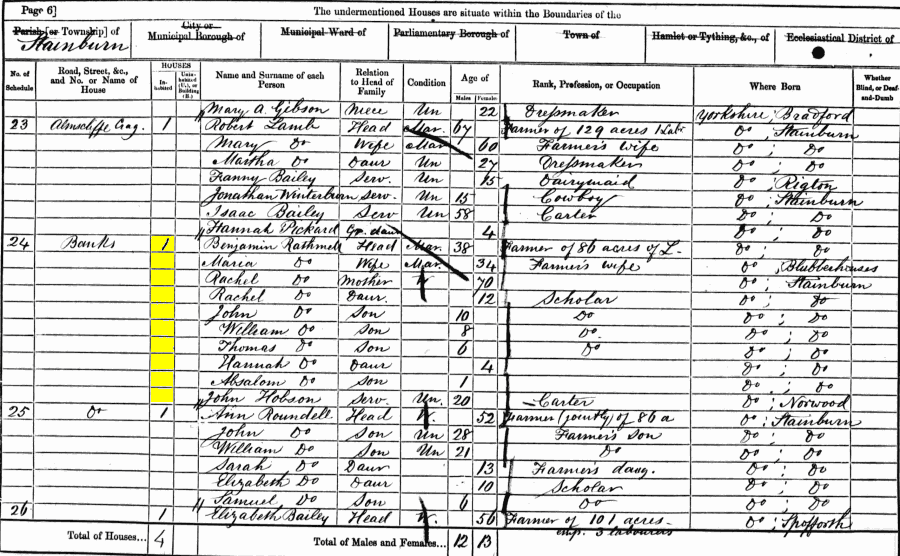 Page 6] The undermentioned Houses are situate within the Boundaries of the
Parish [or Township] of Stainburn City or Municipal Borough of Municipal Ward of Parliamentary Borough of Town of Hamlet or Tything, &c., of Ecclesiastical District of
No. of Schedule Road, Street, &c., and No. or Name of House HOUSES Inhabited Uninhabited (U.), or Building (B.) Name and Surname of each Person Relation to Head of Family Condition Age of Males Females Rank, Profession, or Occupation Where Born Whether Blind, or Deaf-and-Dumb
Mary A. Gibson Niece Un 22 Dressmaker Yorkshire, Bradford
23 Almscliffe Crag. 1 Robert Lamb Head Mar. 67 Farmer of 129 acres 1 Labr Do ; Stainburn
Mary Do Wife Mar 60 Farmer's wife Do ; Do
Martha Do Daur Un 27 Dressmaker Do ; Do
Fanny Bailey Serv. Un 15 Dairymaid Do ; Rigton
Jonathan Winterburn Serv. Un 15 Cowboy Do ; Stainburn
Isaac Bailey Serv Un 58 Carter Do ; Do
Hannah Pickard Gr. daur 4 Do ; Do
24 Banks 1 Benjamin Rathmell Head Mar. 38 Farmer of 86 acres of L. Do ; Do
Maria Do Wife Mar. 34 Farmer's wife Do ; Blubberhouses
Rachel Do Mother W 70 Do ; Stainburn
Rachel Do Daur. 12 Scholar Do ; Do
John Do Son 10 Do Do ; Do
William Do Son 8 Do Do ; Do
Thomas Do Son 6 Do Do ; Do
Hannah Do Daur 4 Do ; Do
Absalom Do Son 1 Do ; Do
John Hobson Serv. Un. 20 Carter Do ; Norwood
25 Do 1 Ann Roundell Head W. 52 Farmer (jointly) of 86 a Do ; Stainburn
John Do Son Un 28 Farmer's Son Do ; Do
William Do Son Un 21 Do Do ; Do
Sarah Do Daur 13 Farmer's daug. Do ; Do
Elizabeth Do Daur 10 Scholar Do ; Do
Samuel Do Son 6 Do Do ; Do
26 1 Elizabeth Bailey Head W. 56 Farmer of 101 acres - Do ; Spofforth
emp. 3 labourers
Total of Houses... 4 Total of Males and Females... 12 13